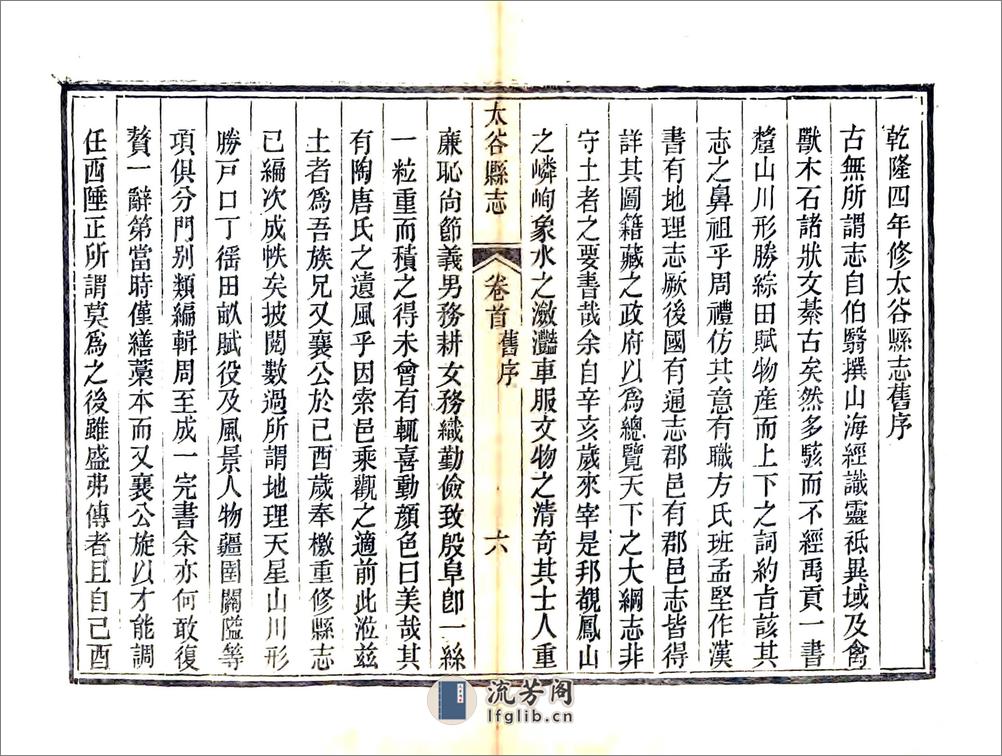 乾隆四年修太谷縣志舊序
古無所謂志自伯翳撰山海經識靈祇異域及禽
獸木石諸狀文綦古矣然多駭而不經禹貢一書
釐山川形勝綜田賦物産而上下之詞約旨該其
志之鼻祖乎周禮仿其意有職方氏班孟堅作漢
書有地理志厥後國有通志郡邑有郡邑志皆得
詳其圖籍藏之政府以爲總覽天下之大綱志非
守土者之要書哉余自辛亥歲來宰是邦覩鳳山
之嶙峋象水之瀲灩車服文物之清奇其士人重
太谷縣志
卷首
舊序
六
廉恥尙節義男務耕女務織勤儉致殷阜卽一絲
一粒重而積之得未曾有輒喜動顔色曰美哉其
有陶唐氏之遺風乎因索邑乘觀之適前此涖兹
土者爲吾族兄又襄公於已酉歲奉檄重修縣志
已編次成帙矣披閱數過所謂地理天星山川形
勝戸口丁徭田畝賦役及風景人物疆圉關隘等
項俱分門别類編輯周至成一完書余亦何敢復
贅一辭第當時僅繕藁本而又襄公旋以才能調
任西陲正所謂莫爲之後雖盛弗傳者且自己酉
流芳阁
lfglib.cn